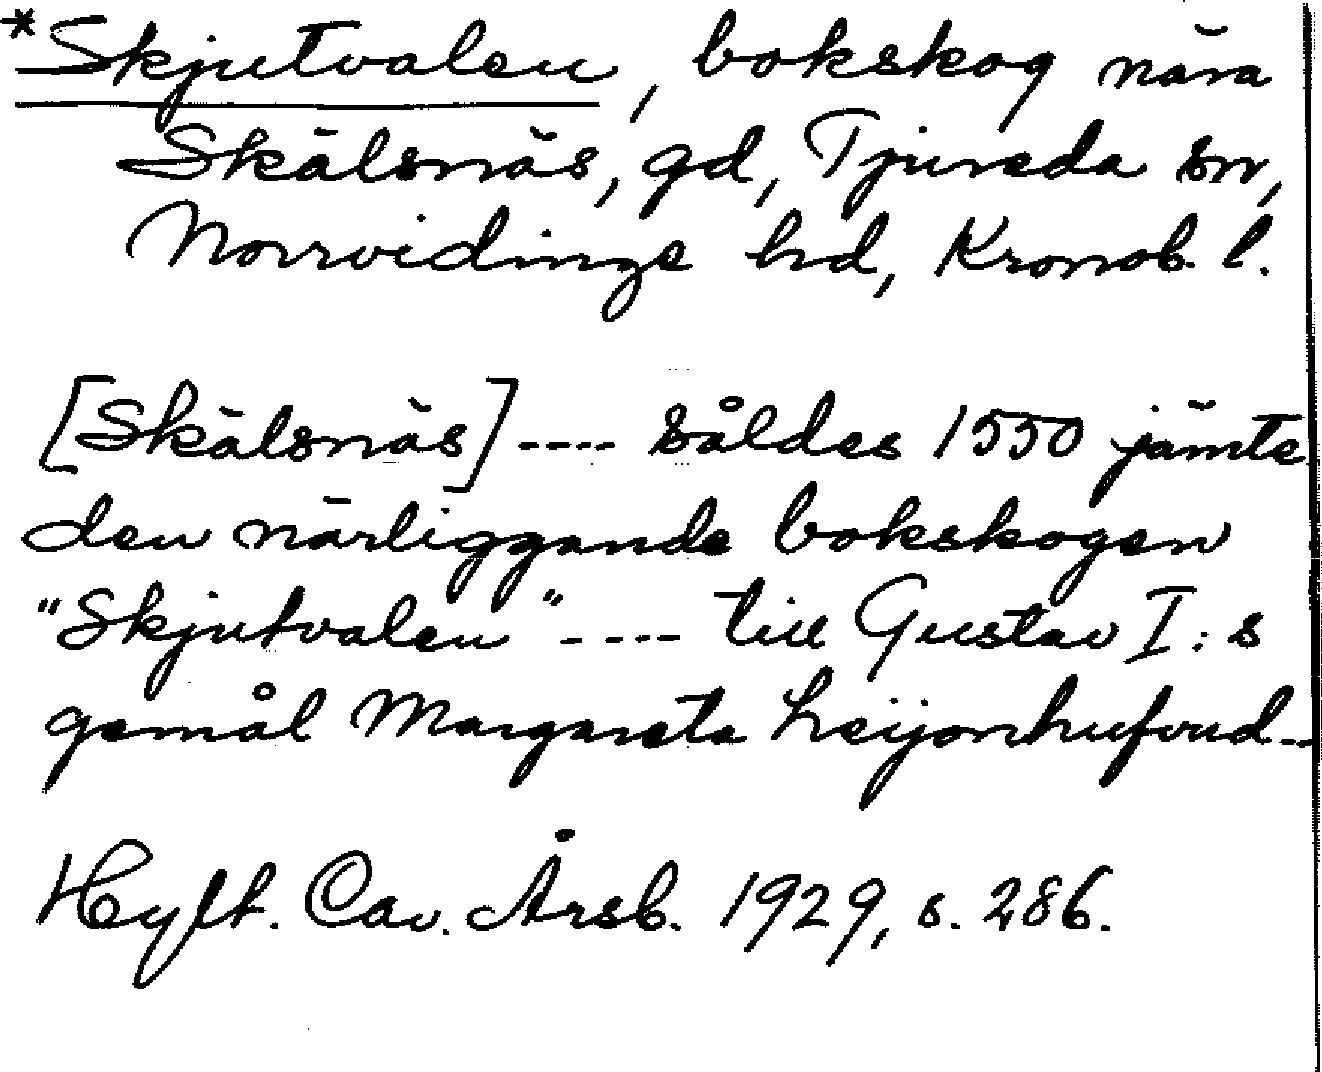 *Skjutvalen, bokskog nära
Skälsnäs, gd, Tjureda sn,
Norrvidinge hd, Kronob. l.
[Skälsnäs] ---- såldes 1550 jämte
den närliggande bokskogen
"Skjutvalen" ---- till Gustav I:s
gemål Margareta Leijonhufvud --
Hylt. Cav. Årsb. 1929, s. 286.